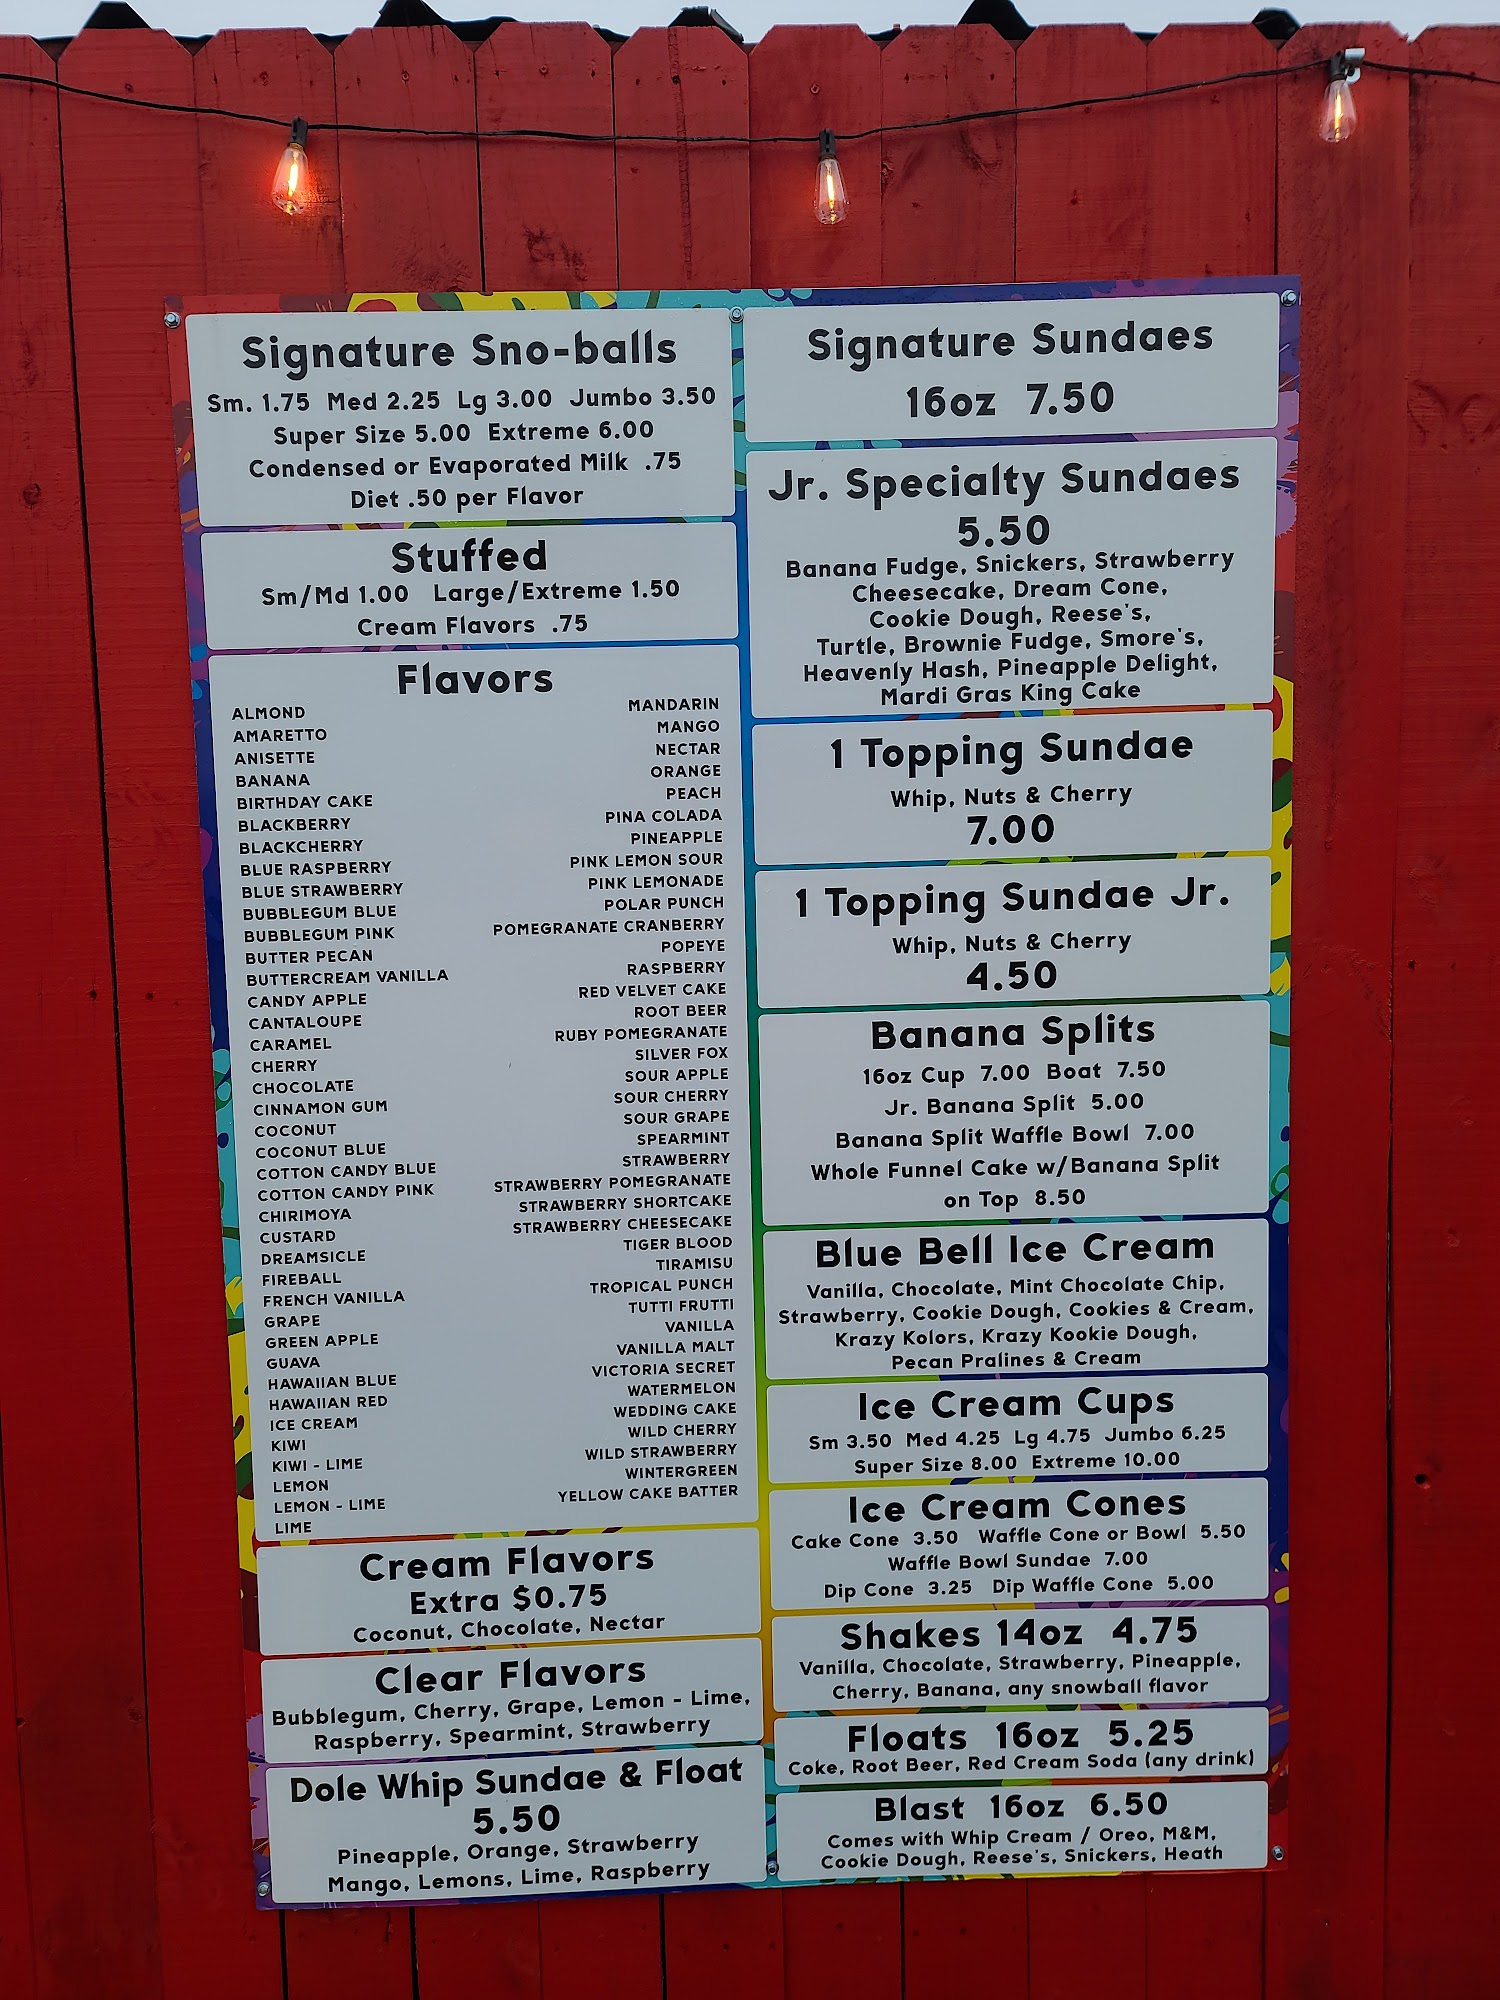 Signature Sno-balls
Sm. 1.75 Med 2.25 Lg 3.00 Jumbo 3.50
Super Size 5.00 Extreme 6.00
Condensed or Evaporated Milk .75
Diet .50 per Flavor
Stuffed
Sm/Md 1.00 Large/Extreme 1.50
Cream Flavors .75
Flavors
ALMOND
AMARETTO
ANISETTE
BANANA
BIRTHDAY CAKE
BLACKBERRY
BLACKCHERRY
BLUE RASPBERRY
BLUE STRAWBERRY
BUBBLEGUM BLUE
BUBBLEGUM PINK
BUTTER PECAN
BUTTERCREAM VANILLA
CANDY APPLE
CANTALOUPE
CARAMEL
CHERRY
CHOCOLATE
CINNAMON GUM
COCONUT
COCONUT BLUE
COTTON CANDY BLUE
COTTON CANDY PINK
CHIRIMOYA
CUSTARD
DREAMSICLE
FIREBALL
FRENCH VANILLA
GRAPE
GREEN APPLE
GUAVA
HAWAIIAN BLUE
HAWAIIAN RED
ICE CREAM
KIWI
KIWI - LIME
LEMON
LEMON - LIME
LIME
MANDARIN
MANGO
NECTAR
ORANGE
PEACH
PINA COLADA
PINEAPPLE
PINK LEMON SOUR
PINK LEMONADE
POLAR PUNCH
POMEGRANATE CRANBERRY
POPEYE
RASPBERRY
RED VELVET CAKE
ROOT BEER
RUBY POMEGRANATE
SILVER FOX
SOUR APPLE
SOUR CHERRY
SOUR GRAPE
SPEARMINT
STRAWBERRY
STRAWBERRY POMEGRANATE
STRAWBERRY SHORTCAKE
STRAWBERRY CHEESECAKE
TIGER BLOOD
TIRAMISU
TROPICAL PUNCH
TUTTI FRUTTI
VANILLA
VANILLA MALT
VICTORIA SECRET
WATERMELON
WEDDING CAKE
WILD CHERRY
WILD STRAWBERRY
WINTERGREEN
YELLOW CAKE BATTER
Cream Flavors
Extra $0.75
Coconut, Chocolate, Nectar
Clear Flavors
Bubblegum, Cherry, Grape, Lemon - Lime,
Raspberry, Spearmint, Strawberry
Dole Whip Sundae & Float
5.50
Pineapple, Orange, Strawberry
Mango, Lemons, Lime, Raspberry
Signature Sundaes
16oz 7.50
Jr. Specialty Sundaes
5.50
Banana Fudge, Snickers, Strawberry
Cheesecake, Dream Cone,
Cookie Dough, Reese's,
Turtle, Brownie Fudge, Smore's,
Heavenly Hash, Pineapple Delight,
Mardi Gras King Cake
1 Topping Sundae
Whip, Nuts & Cherry
7.00
1 Topping Sundae Jr.
Whip, Nuts & Cherry
4.50
Banana Splits
16oz Cup 7.00 Boat 7.50
Jr. Banana Split 5.00
Banana Split Waffle Bowl 7.00
Whole Funnel Cake w/Banana Split
on Top 8.50
Blue Bell Ice Cream
Vanilla, Chocolate, Mint Chocolate Chip,
Strawberry, Cookie Dough, Cookies & Cream,
Krazy Kolors, Krazy Kookie Dough,
Pecan Pralines & Cream
Ice Cream Cups
Sm 3.50 Med 4.25 Lg 4.75 Jumbo 6.25
Super Size 8.00 Extreme 10.00
Ice Cream Cones
Cake Cone 3.50 Waffle Cone or Bowl 5.50
Waffle Bowl Sundae 7.00
Dip Cone 3.25 Dip Waffle Cone 5.00
Shakes 14oz 4.75
Vanilla, Chocolate, Strawberry, Pineapple,
Cherry, Banana, any snowball flavor
Floats 16oz 5.25
Coke, Root Beer, Red Cream Soda (any drink)
Blast 16oz 6.50
Comes with Whip Cream / Oreo, M&M,
Cookie Dough, Reese's, Snickers, Heath